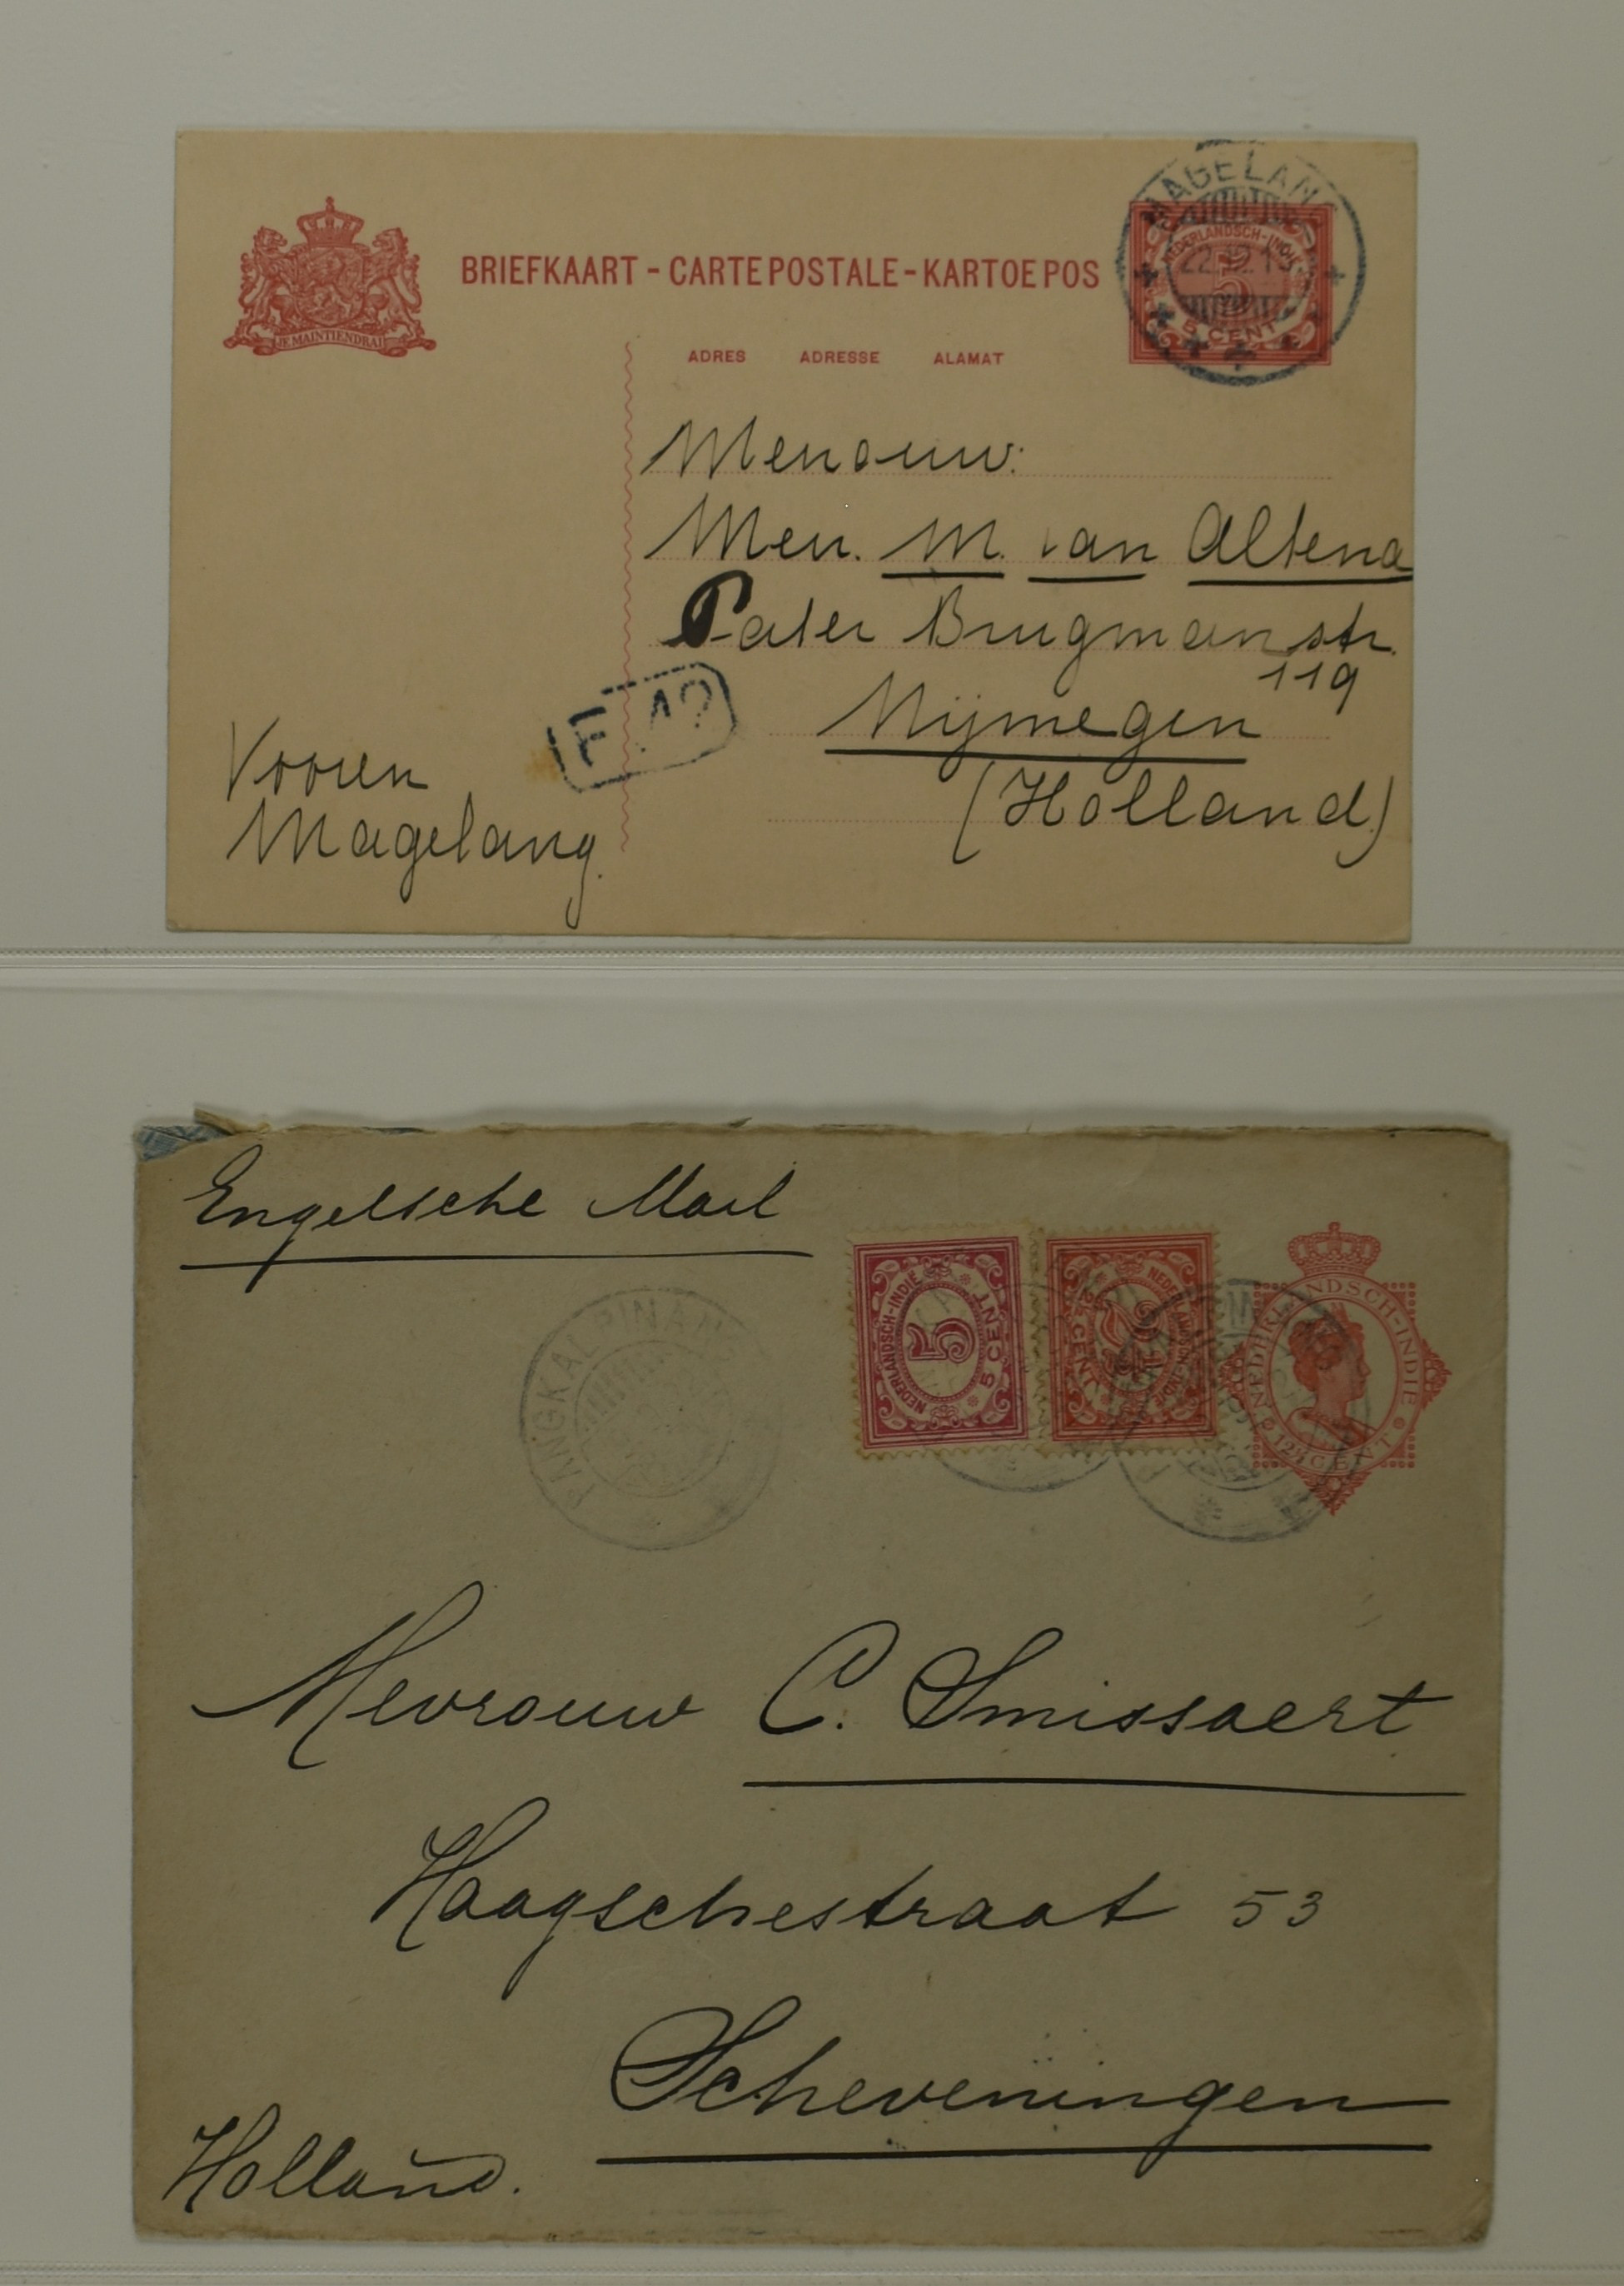 JE MAINTIENDRAI
BRIEFKAART - CARTE POSTALE - KARTOE POS
MAGELANG
NEDERLANDSCH-INDIE
5
5 CENT
ADRES ADRESSE ALAMAT
Mevrouw:
Mevr. M. van Altena
Pater Brugmanstr.
119
Nijmegen
(Holland)
F. 12
Magelang.
Engelsche Mail
PANGKALPINANG
NEDERLANDSCH-INDIE
5
5 CENT
NEDERLANDSCH-INDIE
CENT
NEDERLANDSCH-INDIE
12½ CENT
Mevrouw C. Smissaert
Haagschestraat 53
Scheveningen
Holland.